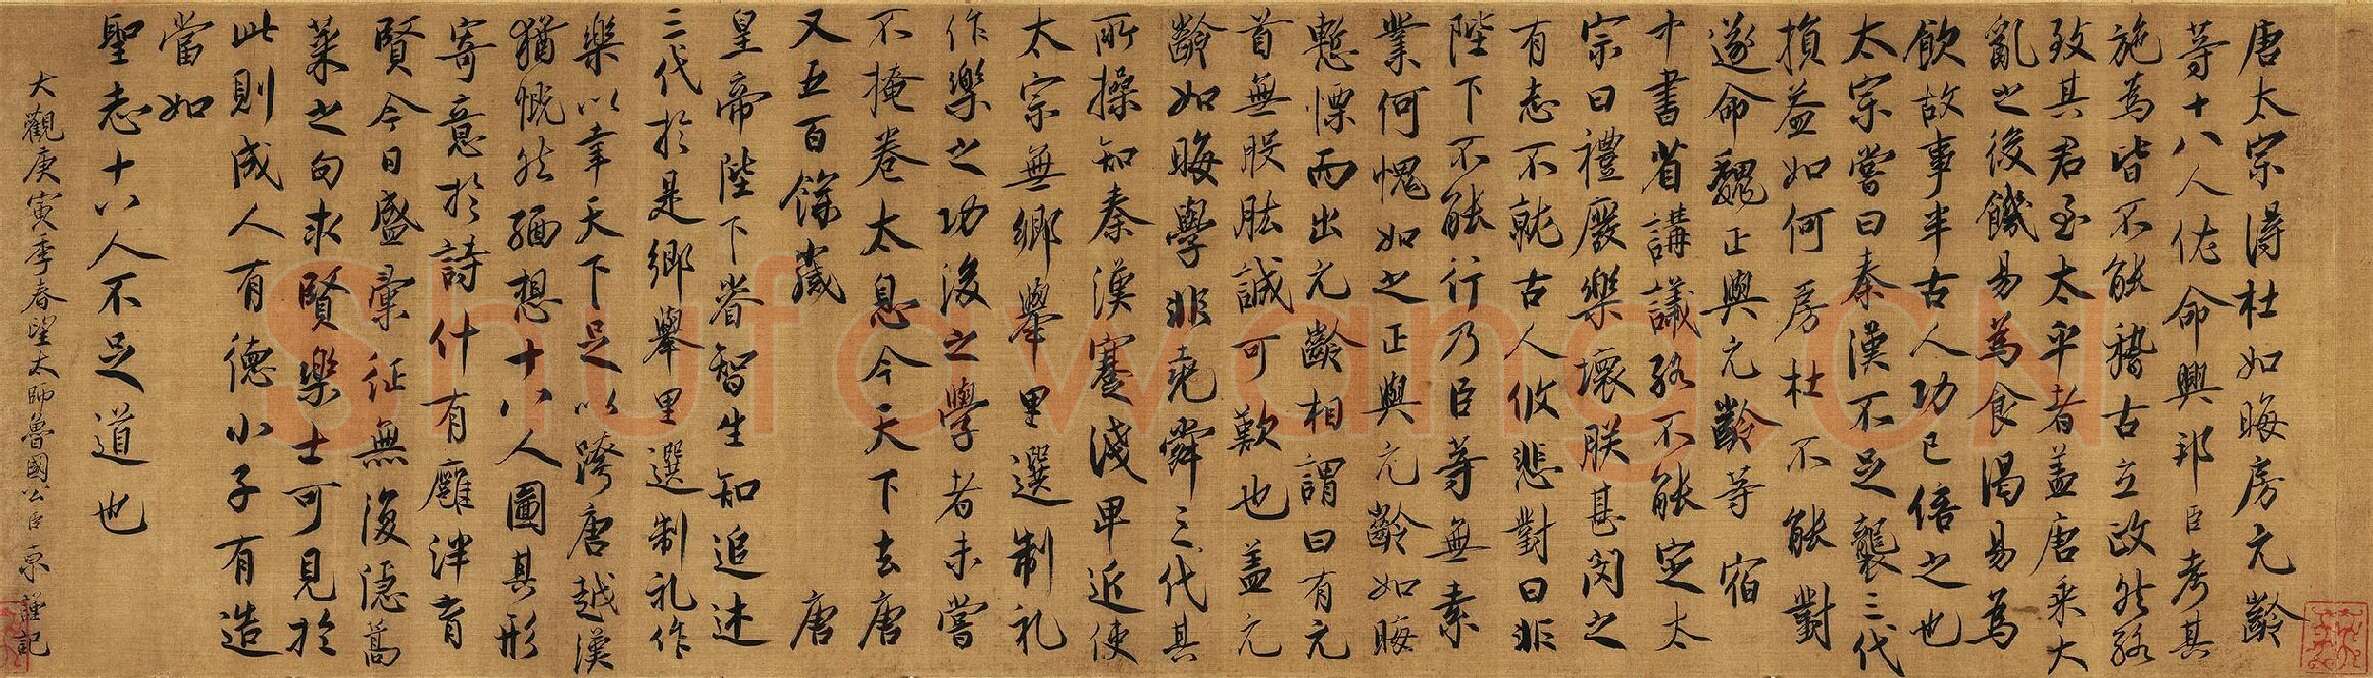 唐太宗得杜如晦房元齡
等十八人佐命興邦臣考其
施為皆不能稽古立政然終
致其君至太平者盖唐乘大
亂之後饑易為食渴易為
飲故事半古人功已倍之也
太宗嘗曰秦漢不足襲三代
損益如何房杜不能對
遂命魏正與元齡等宿
中書省講議終不能定太
宗曰禮廢樂壞朕甚閔之
有志不就古人攸悲對曰非
陛下不能行乃臣等無素
業何愧如之正與元齡如晦
慙慄而出元齡相謂曰有元
首無股肱誠可歎也盖元
齡如晦學非堯舜三代其
所操知秦漢蹇淺卑近使
太宗無鄉舉里選制礼
作樂之功後之學者未嘗
不掩卷太息今天下去唐
又五百餘歲 唐
皇帝陛下睿智生知追述
三代於是鄉舉里選制礼作
樂以幸天下足以跨唐越漢
猶慨然緬想十八人圖其形
寄意於詩什有廱泮育
賢今日盛彙征無復隱蒿
萊之句求賢樂士可見於
此則成人有德小子有造
當如
聖志十八人不足道也
大觀庚寅季春望太師魯國公臣京謹記
Shufawang.CN